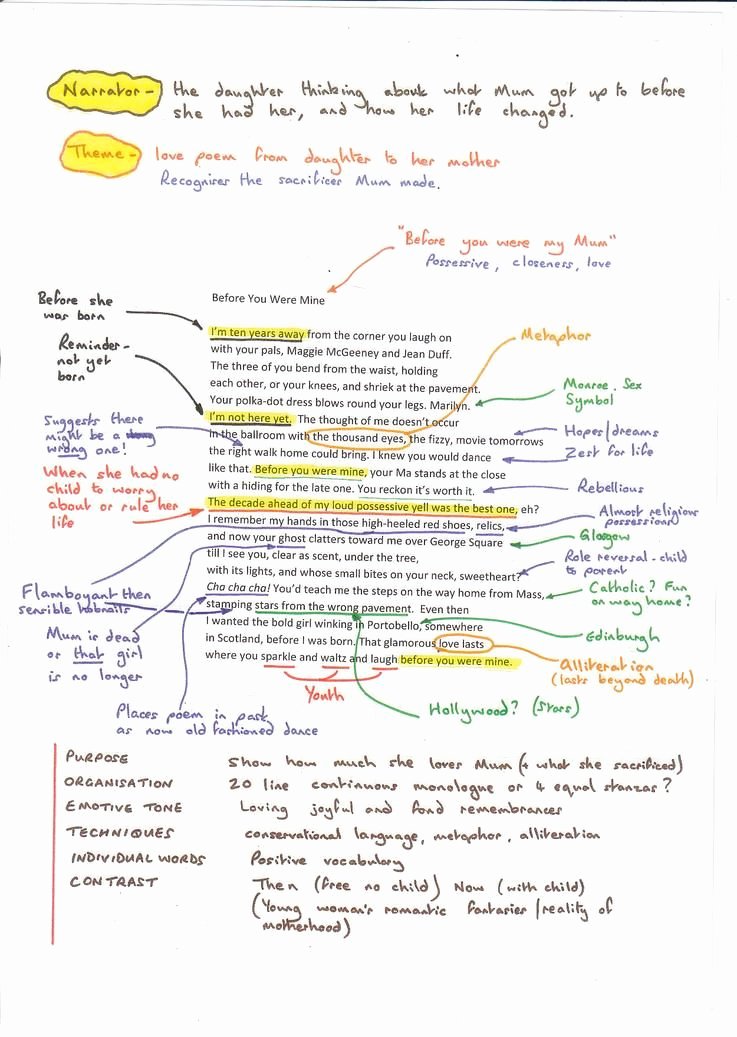 Narrator - the daughter thinking about what Mum got up to before
she had her, and how her life changed.
Theme - love poem from daughter to her mother
Recognises the sacrifices Mum made.
"Before you were my Mum"
Possessive, closeness, love
Before she
was born
Before You Were Mine
Reminder -
not yet
born
I'm ten years away from the corner you laugh on
with your pals, Maggie McGeeney and Jean Duff.
The three of you bend from the waist, holding
each other, or your knees, and shriek at the pavement.
Your polka-dot dress blows round your legs. Marilyn.
Metaphor
Monroe. Sex
Symbol
I'm not here yet. The thought of me doesn't occur
in the ballroom with the thousand eyes, the fizzy, movie tomorrows
the right walk home could bring. I knew you would dance
like that. Before you were mine, your Ma stands at the close
with a hiding for the late one. You reckon it's worth it.
Suggests there
might be a
wrong one!
Hopes/dreams
Zest for life
Rebellious
When she had no
child to worry
about or rule her
life
The decade ahead of my loud possessive yell was the best one, eh?
I remember my hands in those high-heeled red shoes, relics,
and now your ghost clatters toward me over George Square
till I see you, clear as scent, under the tree,
with its lights, and whose small bites on your neck, sweetheart?
Almost religious
possessions
Glasgow
Role reversal - child
to parent
Flamboyant then
sensible hobnails
Cha cha cha! You'd teach me the steps on the way home from Mass,
stamping stars from the wrong pavement. Even then
I wanted the bold girl winking in Portobello, somewhere
in Scotland, before I was born. That glamorous love lasts
where you sparkle and waltz and laugh before you were mine.
Catholic? Fun
on way home?
Edinburgh
Alliteration
(lasts beyond death)
Mum is dead
or that girl
is no longer
Youth
Hollywood? (Stars)
Places poem in past
as now old fashioned dance
PURPOSE Show how much she loves Mum (+ what she sacrificed)
ORGANISATION 20 line continuous monologue or 4 equal stanzas?
EMOTIVE TONE Loving joyful and fond remembrances
TECHNIQUES conservational language, metaphor, alliteration
INDIVIDUAL WORDS Positive vocabulary
CONTRAST Then (free no child) Now (with child)
(Young woman's romantic fantasies / reality of
motherhood)